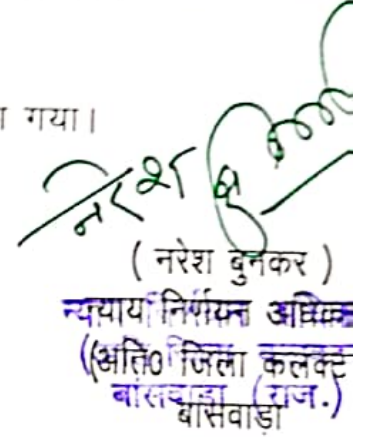 गया।
नरेश
( नरेश बुनकर )
न्याय निर्णयन अधिक
(अति0 जिला कलक्ट
बांसवाड़ा (राज.)
बांसवाड़ा